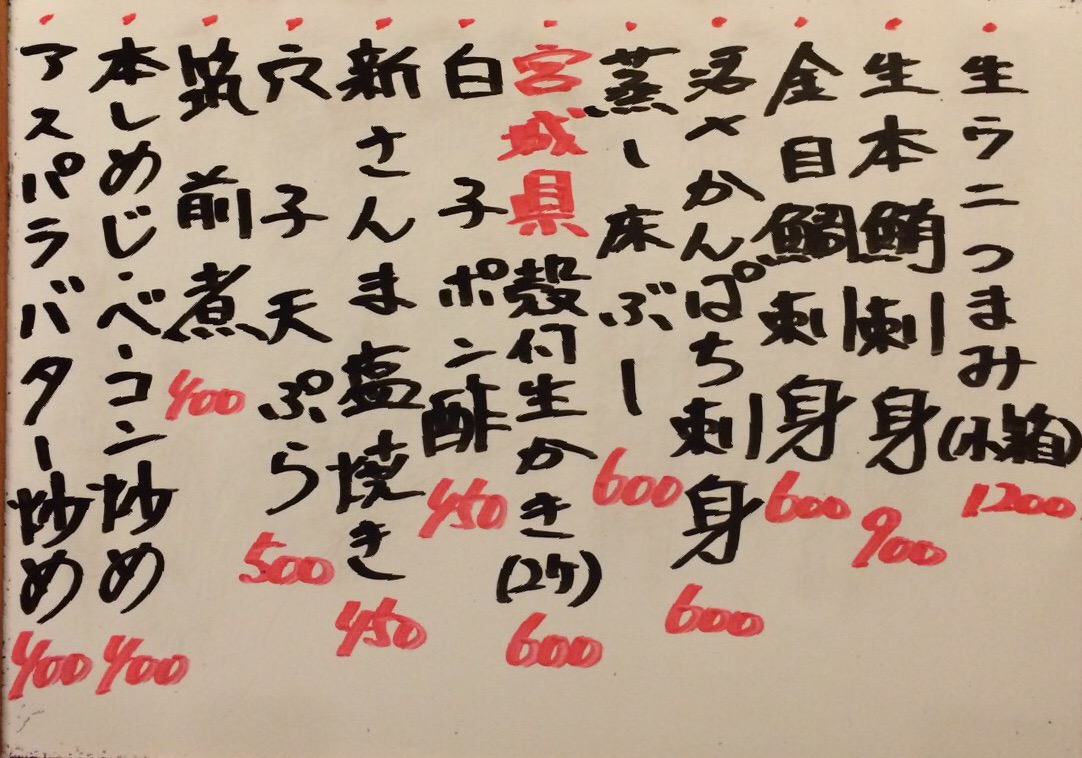 生ウニつまみ(木箱) 1200
生本鮪刺身 900
金目鯛刺身 600
活〆かんぱち刺身 600
蒸し床ぶし 600
宮城県殻付生かき(2ケ) 600
白子ポン酢 450
新さんま塩焼き 450
穴子天ぷら 500
筑前煮 400
本しめじ・ベーコン炒め 400
アスパラバター炒め 400